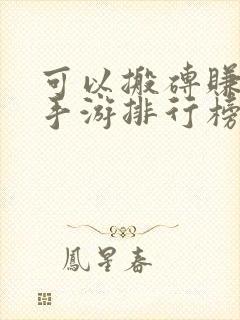 可以搬砖赚
手游排行榜
鳳星春